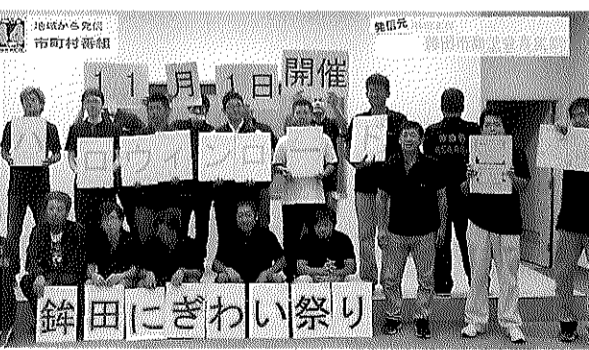 地域から発信
市町村番組
発信元
11月1日開催
ハロウィンロー
鉾田にぎわい祭り